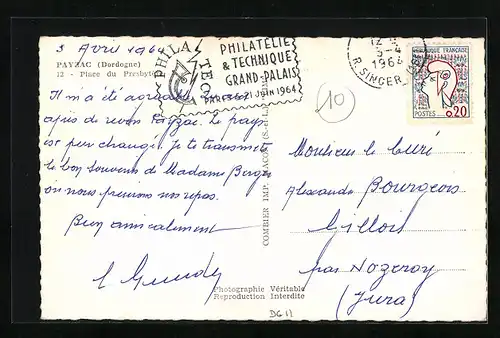 3 Avril 1964
PAYZAC (Dordogne)
12 - Place du Presbyt
PHILATEC
PHILATÉLIE
& TECHNIQUE
GRAND-PALAIS
PARIS 5-21 JUIN 1964
1964
R. SINGER
RÉPUBLIQUE FRANÇAISE
POSTES 0,20
10
Il m'a été agréable
après de revoir Payzac. Le pays
est peu changé. Je te transmets
le bon souvenir de Madame Berger
où nous prenions nos repas.
Bien amicalement
COMBIER IMP. MACON
Monsieur le Curé
Alexandre Bourgeois
Gillois
par Nozeroy
(Jura)
Photographie Véritable
Reproduction Interdite
DG 11